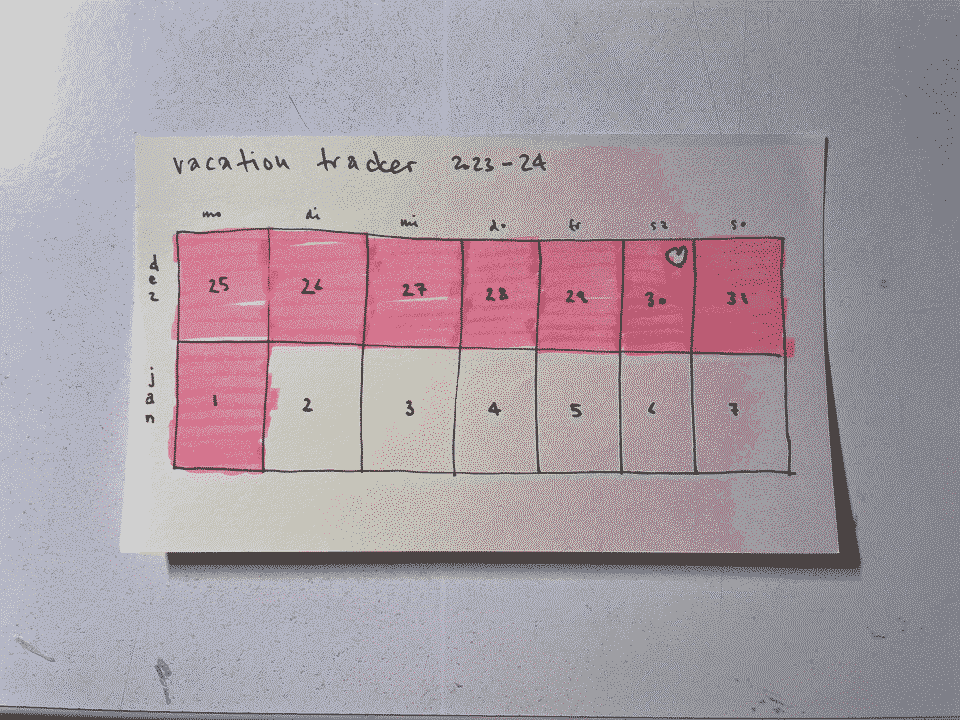 vacation tracker 2023-24
mo di mi do fr sa so
dez 25 26 27 28 29 30 31
jan 1 2 3 4 5 6 7